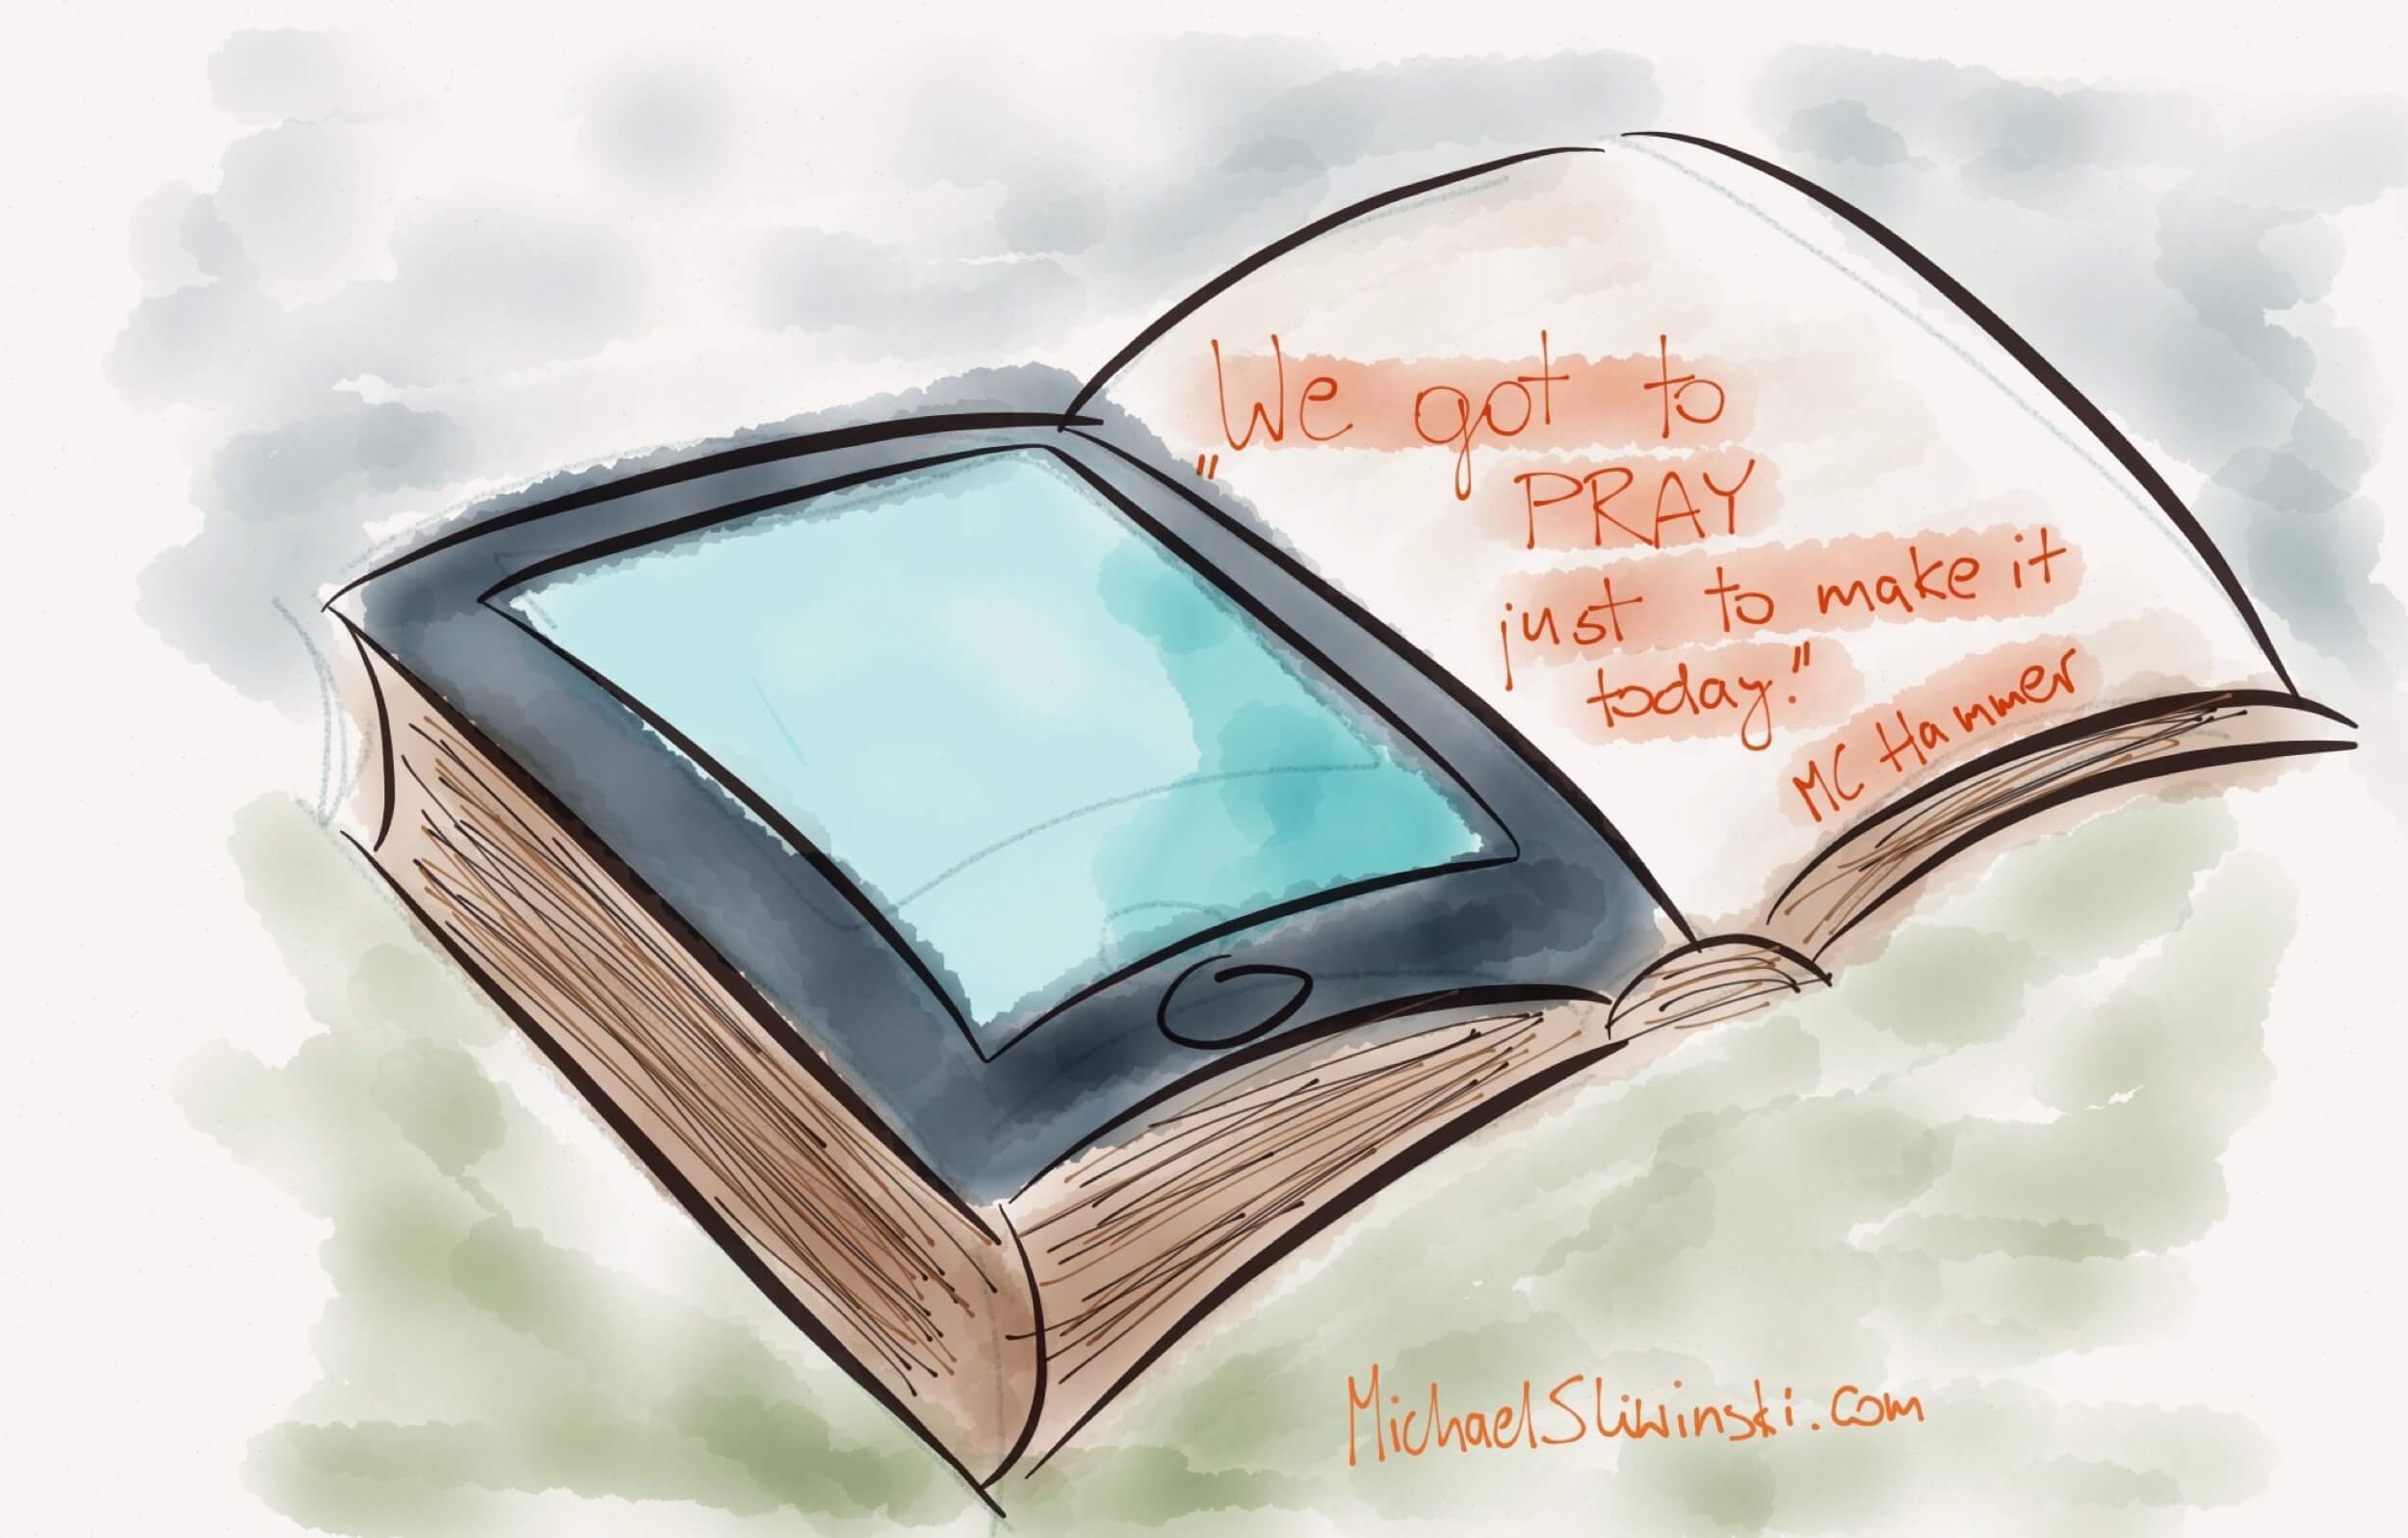 „We got to
PRAY
just to make it
today."
MC Hammer
MichaelSliwinski.com